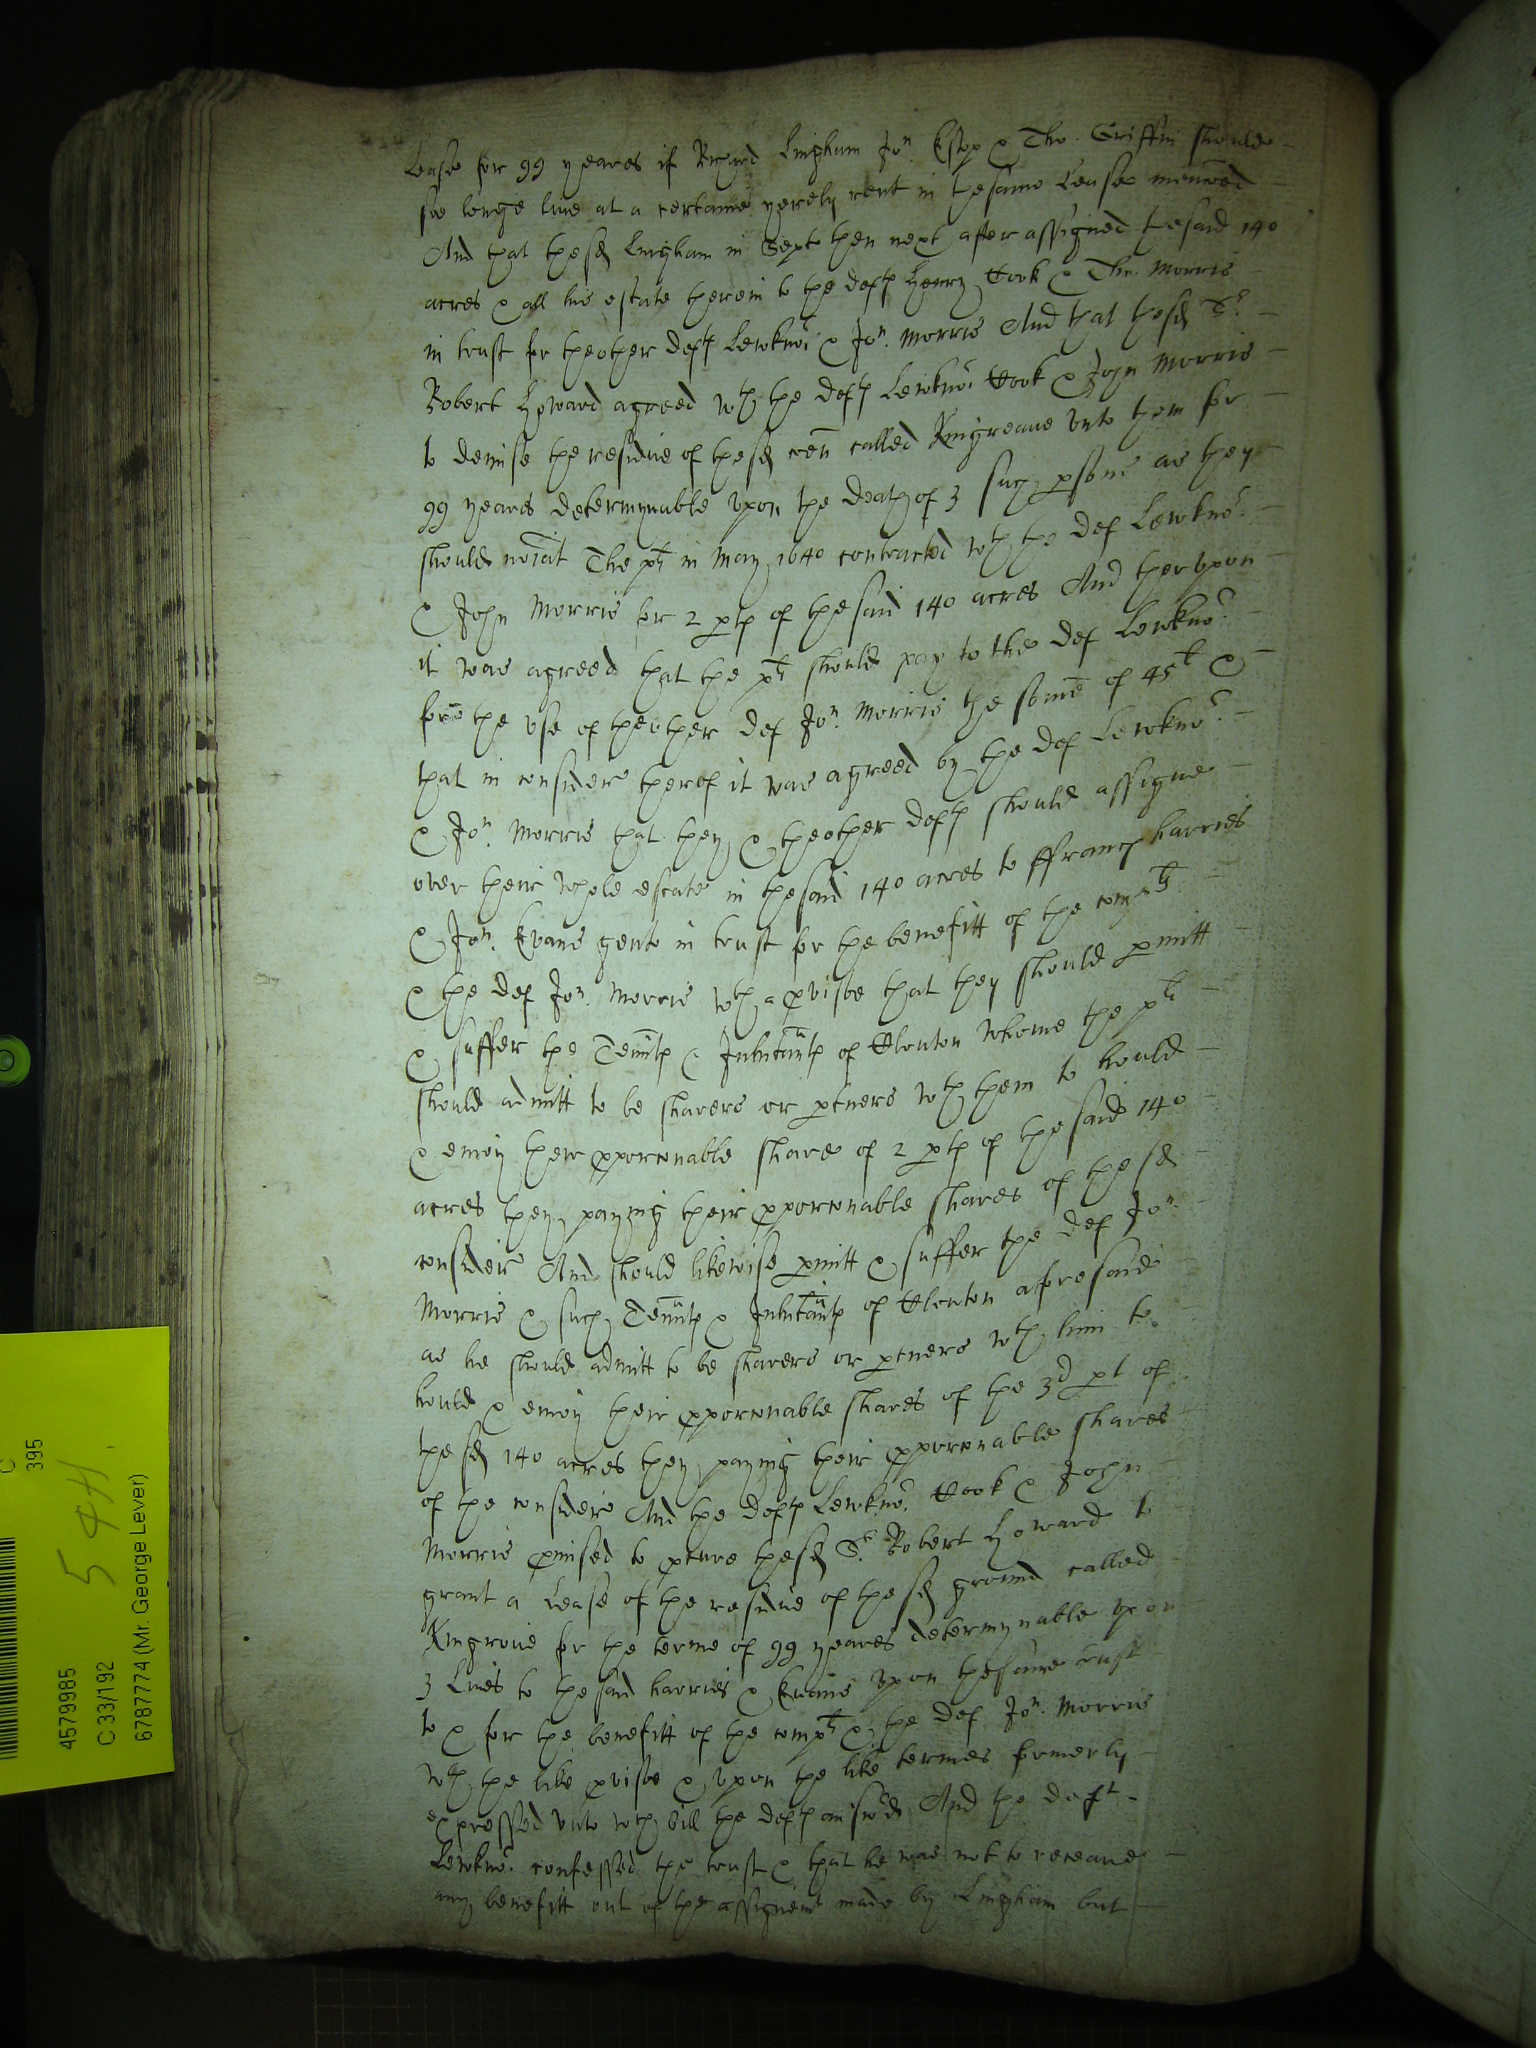 Lease for 99 yeares if Richard Lingham Jon. Estop & Tho. Griffin should
soe longe live at a certaine yerely rent in the same Lease menconed
And that the sd Lingham in Sept then next after assigned the said 140
acres & all his estate therein to the defts Henry Hook & Tho. Morris
in trust for the other defts Lewknor & Jon. Morris And that the sd Sr
Robert Howard agreed wth the defts Lewknor Hook & John Morris
to demise the residue of the sd called Kingreave unto them for
99 yeares determynable upon the death of 3 such psons as they
should noiat The plt in May 1640 contracted wth the def Lewknor
& John Morris for 2 pts of the said 140 acres And therupon
it was agreed that the plt should pay to the def Lewknor
for the use of the other def Jon. Morris the some of 45l &
that in consider therof it was agreed by the def Lewknor
& Jon. Morris that they & the other defts should assigne
over their whole estate in the said 140 acres to ffrancs harries
& Jon. Evans gents in trust for the benefitt of the complts
& the def Jon. Morris wth a pvisoe that they should pmitt
& suffer the Tennts & Inhitants of Clonton whome the plt
should admitt to be sharers or ptners wth them to hould
& enioy their pporconable share of 2 pts of the said 140
acres they paying their pporconable shares of the sd
consider And should likewise pmitt & suffer the def Jon.
Morris & such Tennts & Inhitants of Clonton aforesaid
as he should admitt to be sharers or ptners wth him to
hould & enioy their pporconable shares of the 3d pt of
the sd 140 acres they paying their pporconable shares
of the consider And the defts Lewknor Hook & John
Morris pmised to pcure the sd Sr Robert Howard to
grant a Lease of the residue of the sd ground called
Kingrove for the terme of 99 yeares determynable upon
3 Lives to the said harries & Evans upon the same trust
to & for the benefitt of the complt & the def Jon. Morris
wth the like pvisoe & upon the like termes formerly
expressed unto wch bill the defts answerd And the deft
Lewknor confessed the trust & that he was not to receave
any benefitt out of the assignemt made by Lingham but
C
395
544
4579985
C 33/192
6787774 (Mr. George Lever)